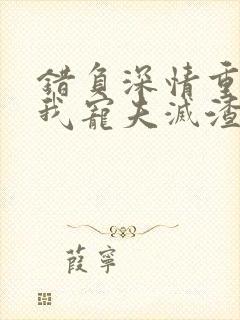 錯負深情重
我寵夫滅渣
葭寧